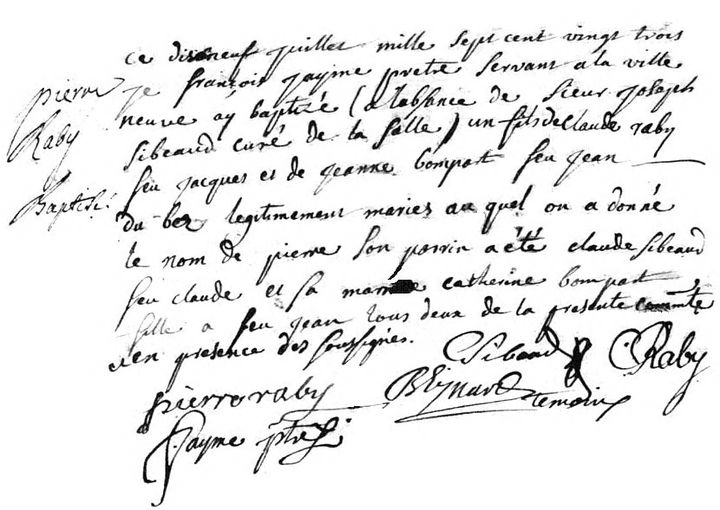 pierre
Raby
Baptisé
ce dixneuf juillet mille sept cent vingt trois
je françois jayme pretre servant a la ville
neuve aÿ baptisé (a labsance de sieur joseph
sibeaud curé de la salle) un fils de Claude raby
feu jacques et de jeanne bompart feu jean
du bez legitimement mariez au quel on a donné
le nom de pierre son parrin a été claude sibeaud
feu claude et sa catherine bompart
fille a feu jean tous deux de la presente
en presence des soussignés.
Sibeaud CRaby
pierre raby temoin
jayme ptre